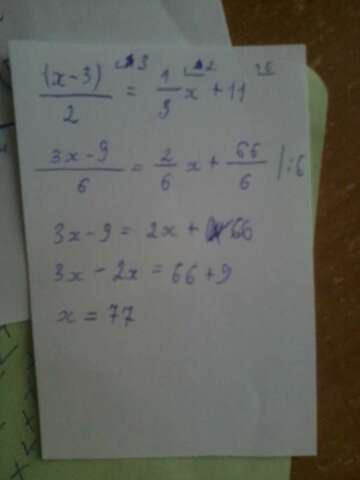 (x-3)/2 = 1/3 x + 11
(3x-9)/6 = 2/6 x + 66/6 /:6
3x-9 = 2x + 66
3x - 2x = 66+9
x = 77